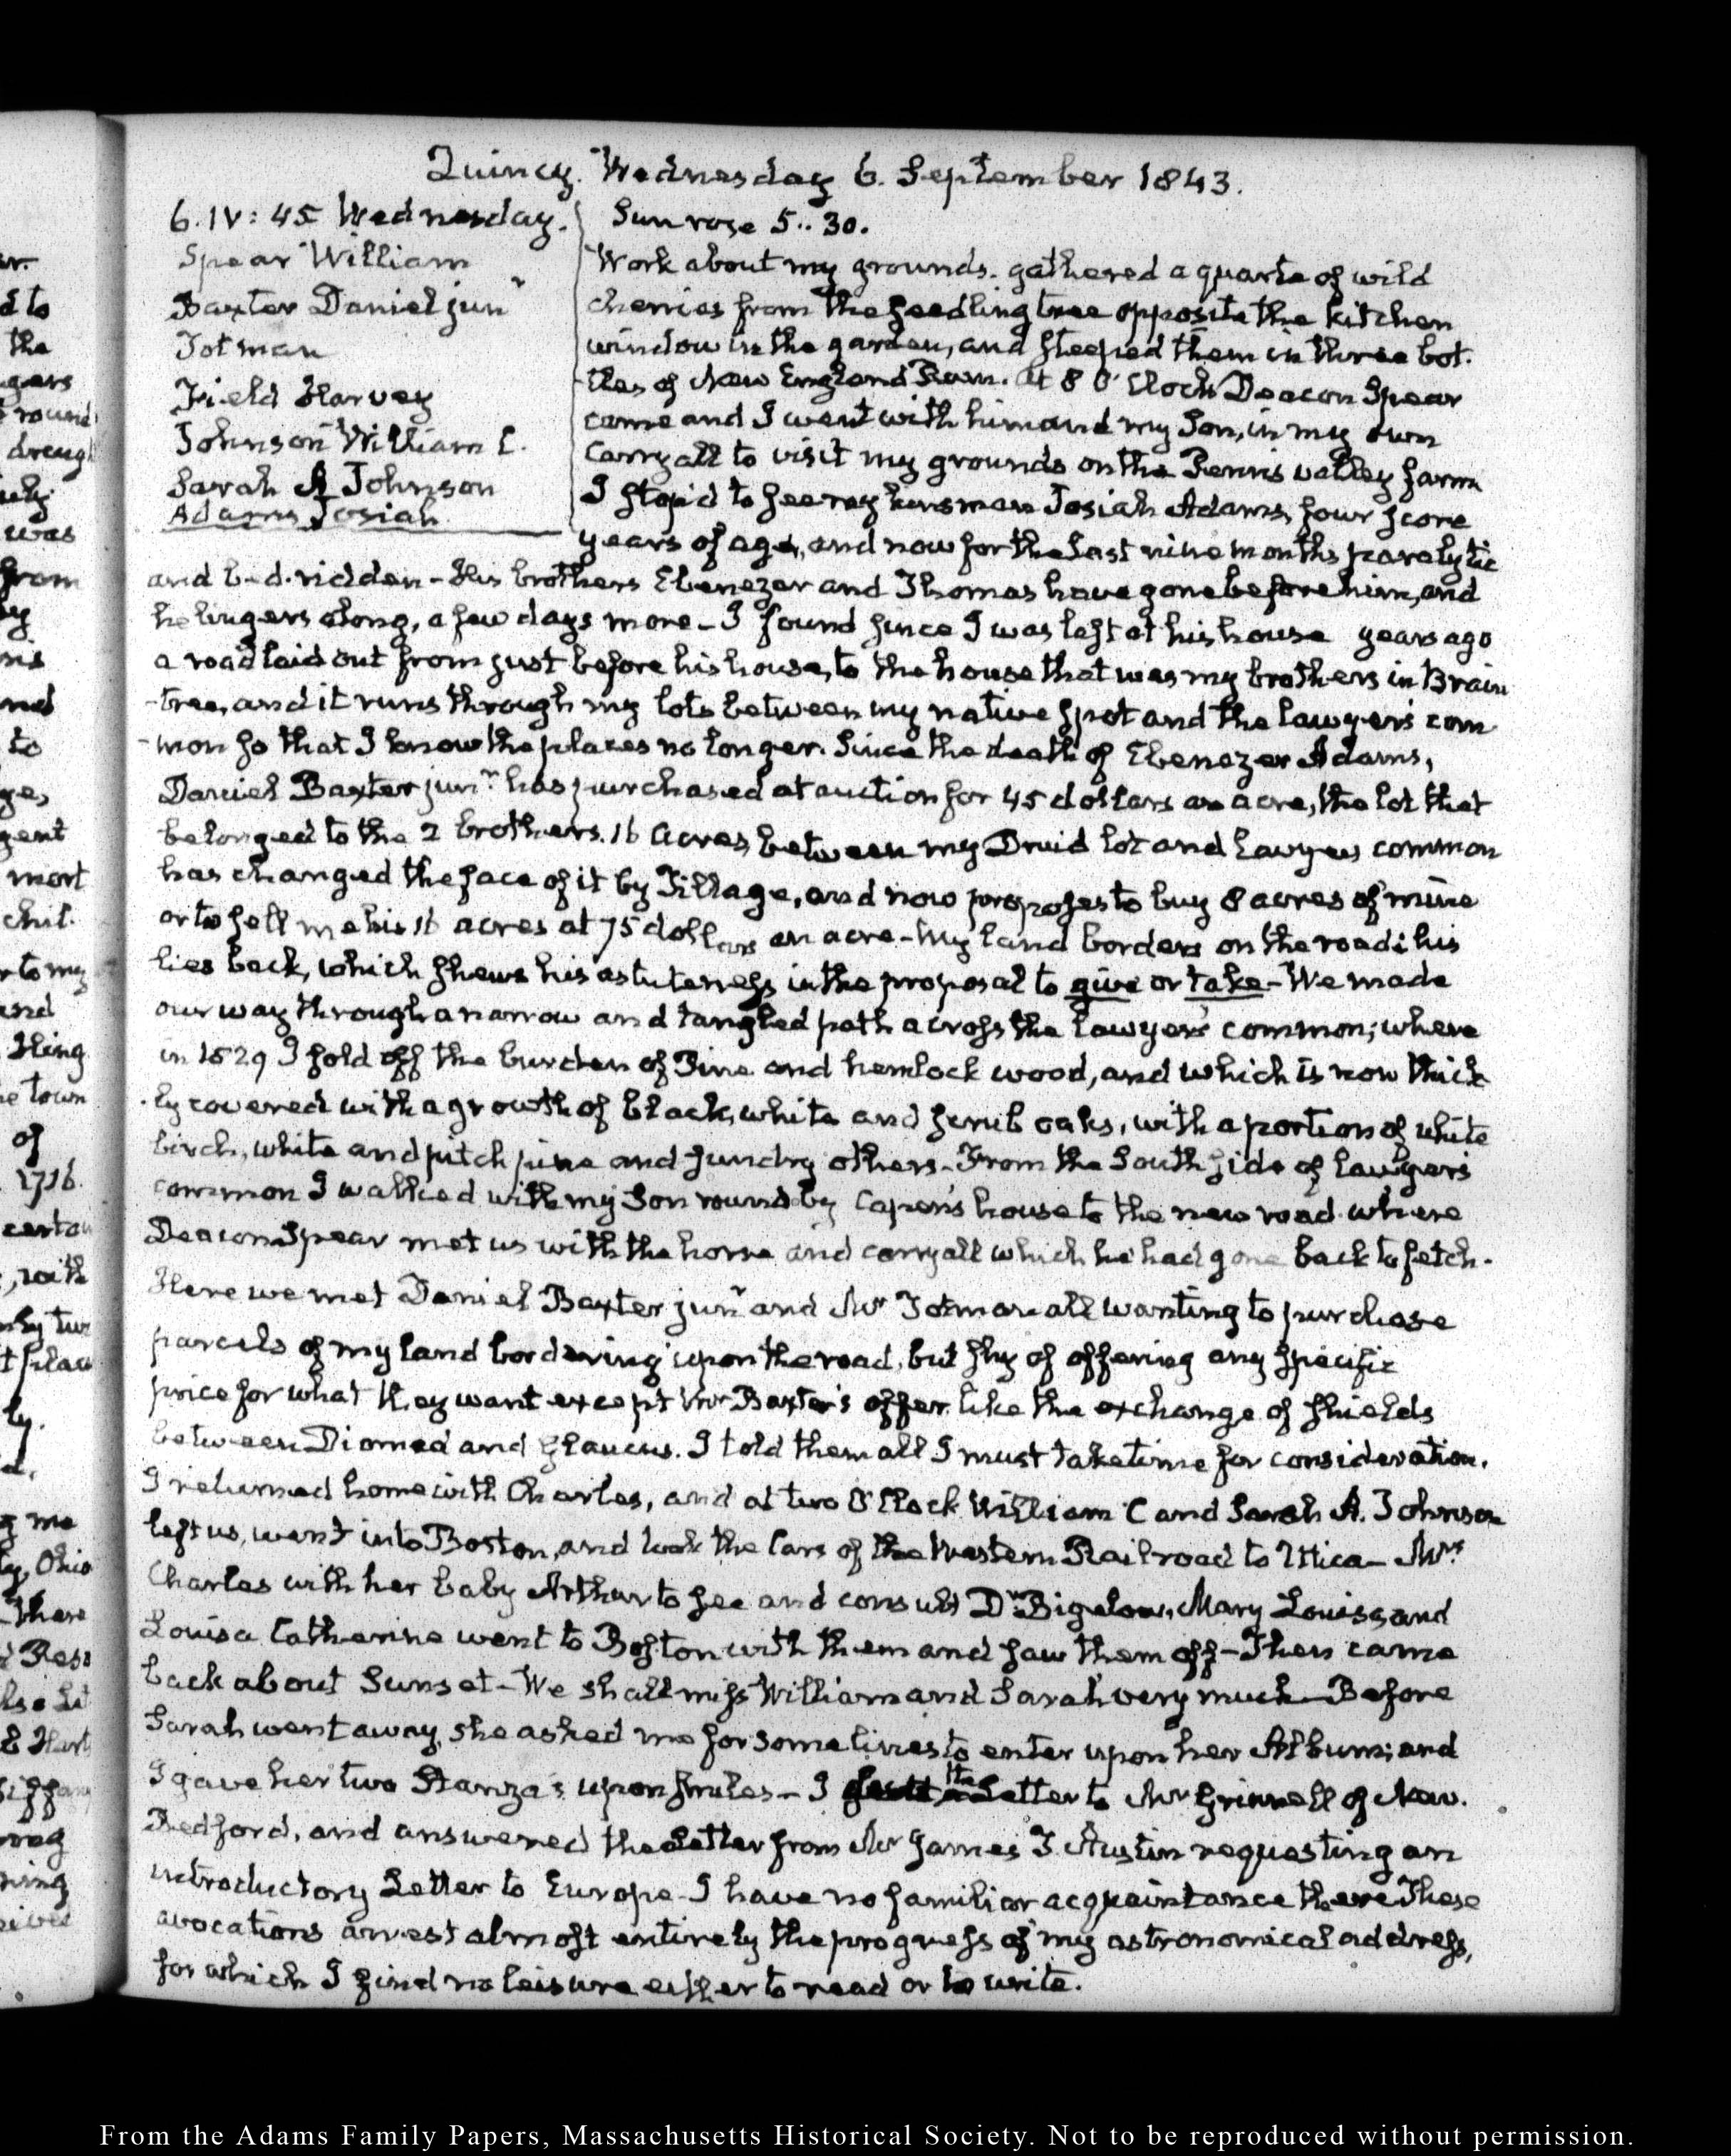 Quincy. Wednesday 6. September 1843.
6. IV: 45 Wednesday.
Spear William
Baxter Daniel junr
Totman
Field Harvey
Johnson William C.
Sarah A Johnson
Adams Josiah
Sun rose 5.. 30.
Work about my grounds. gathered a quarte of wild
cherries from the seedling tree opposite the kitchen
window in the garden, and steeped them in three bot-
-tles of New England Rum. At 8 O'Clock Deacon Spear
came and I went with him and my Son, in my own
Carryall to visit my grounds on the Penns valley farm
I stop'd to see my kinsman Josiah Adams, four score
years of age, and now for the last nine months paralytic
and bed-ridden - His brothers Ebenezer and Thomas have gone before him, and
he lingers along, a few days more - I found since I was last at his house years ago
a road laid out from just before his house, to the house that was my brothers in Brain
-tree, and it runs through my lots between my native spot and the lawyers' com
-mon so that I know the places no longer. Since the death of Ebenezer Adams,
Daniel Baxter junr. has purchased at auction for 45 dollars an acre, the lot that
belonged to the 2 brothers. 16 acres, between my Druid lot and Lawyers common
has changed the face of it by Tillage, and now proposes to buy 8 acres of mine
or to sell me his 16 acres at 75 dollars an acre - My land borders on the road: his
lies back, which shews his astuteness in the proposal to give or take - We made
our way through a narrow and tangled path across the lawyers' common; where
in 1829 I sold off the burden of Pine and hemlock wood, and which is now thick
-ly covered with a growth of black, white and scrub oaks, with a portion of white
birch, white and pitch pine and sundry others - From the South side of Lawyers
common I walked with my Son round by Capen's house to the new road where
Deacon Spear met us with the horse and carryall which he had gone back to fetch.
Here we met Daniel Baxter junr and Mr Totman all wanting to purchase
parcels of my land bordering upon the road, but shy of offering any specific
price for what they want except Mr Baxter's offer like the exchange of shields
between Diomed and Glaucus. I told them all I must take time for consideration.
I returned home with Charles, and at two O'Clock William C and Sarah A. Johnson
left us, went into Boston, and took the Cars of the Western Railroad to Utica - Mrs
Charles with her baby Arthur to see and consult Dr Bigelow, Mary Louisa, and
Louisa Catherine went to Boston with them and saw them off - Then came
back about Sunset - We shall miss William and Sarah very much - Before
Sarah went away, she asked me for some lines to enter upon her Album; and
I gave her two Stanza's upon smiles - I the Letter to Mr Grinnell of New-
Bedford, and answered the Letter from Mr James T. Austin requesting an
introductory Letter to Europe - I have no familiar acquaintance there These
avocations arrest almost entirely the progress of my astronomical address,
for which I find no leisure either to read or to write.
From the Adams Family Papers, Massachusetts Historical Society. Not to be reproduced without permission.